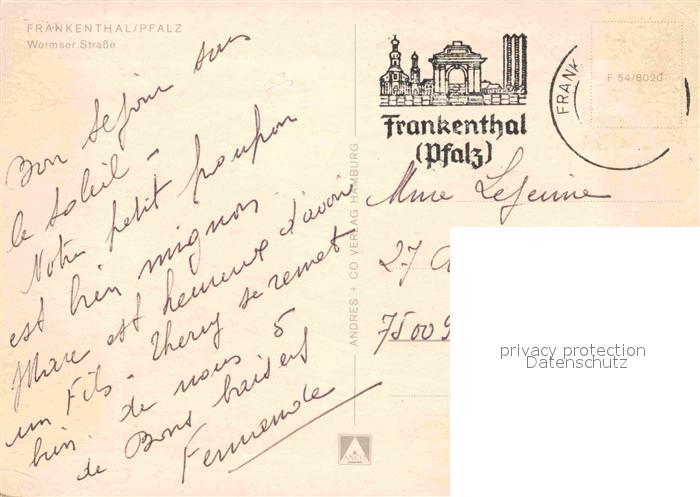 FRANKENTHAL/PFALZ
Wormser Straße
Bon séjour sous
le soleil -
Notre petit poupon
est bien mignon
Marc est heureux d'avoir
un Fils - Thierry se remet
bien. de nous 5
de Bons baisers
Fernande
ANDRES + CO VERLAG HAMBURG
ANCO
Frankenthal
(Pfalz)
FRANK
F 54/8020
Mme Lejeune
27
75009
privacy protection
Datenschutz